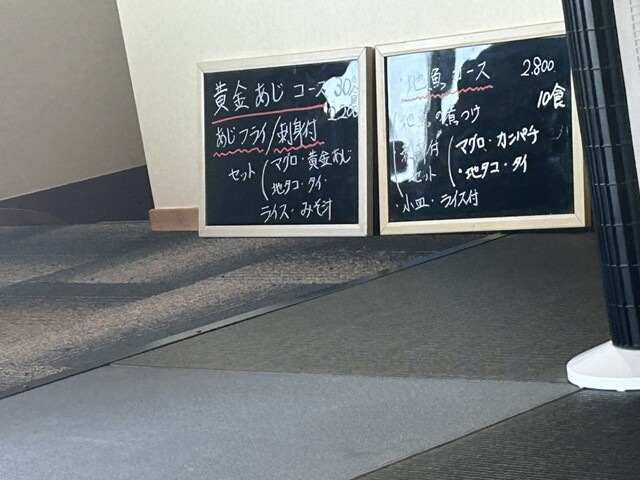 黄金あじ コース 30食
あじフライ/刺身付
セット(マグロ・黄金あじ
地タコ・タイ
ライス・みそ汁
地魚コース 2.800
10食
地魚の煮つけ
セット
(マグロ・カンパチ
・地タコ・タイ
・小皿・ライス付